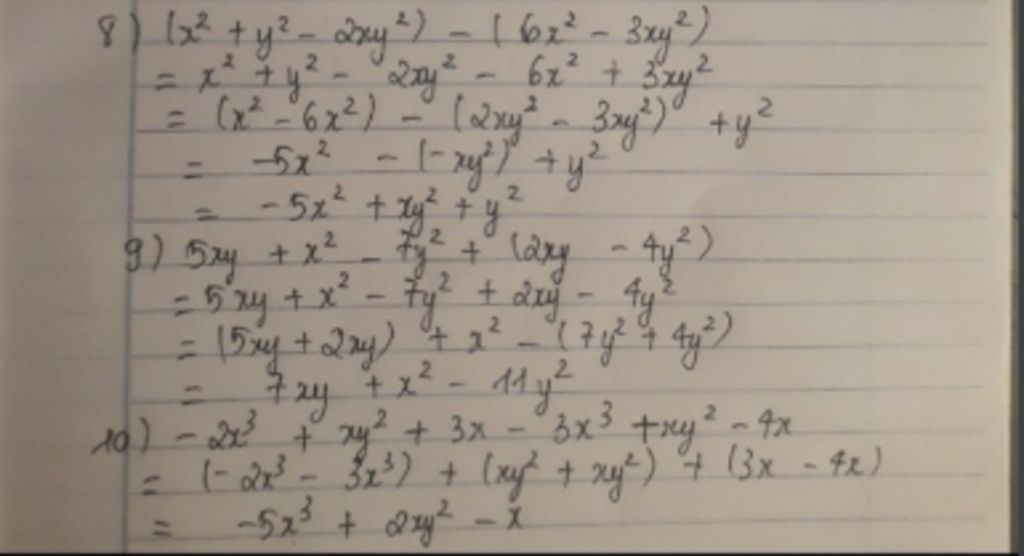 8) (x² + y² - 2xy²) - (6x² - 3xy²)
= x² + y² - 2xy² - 6x² + 3xy²
= (x² - 6x²) - (2xy² - 3xy²) + y²
= -5x² - (-xy²) + y²
= -5x² + xy² + y²
9) 5xy + x² - 7y² + (2xy - 4y²)
= 5xy + x² - 7y² + 2xy - 4y²
= (5xy + 2xy) + x² - (7y² + 4y²)
= 7xy + x² - 11y²
10) -2x³ + xy² + 3x - 3x³ + xy² - 4x
= (-2x³ - 3x³) + (xy² + xy²) + (3x - 4x)
= -5x³ + 2xy² - x